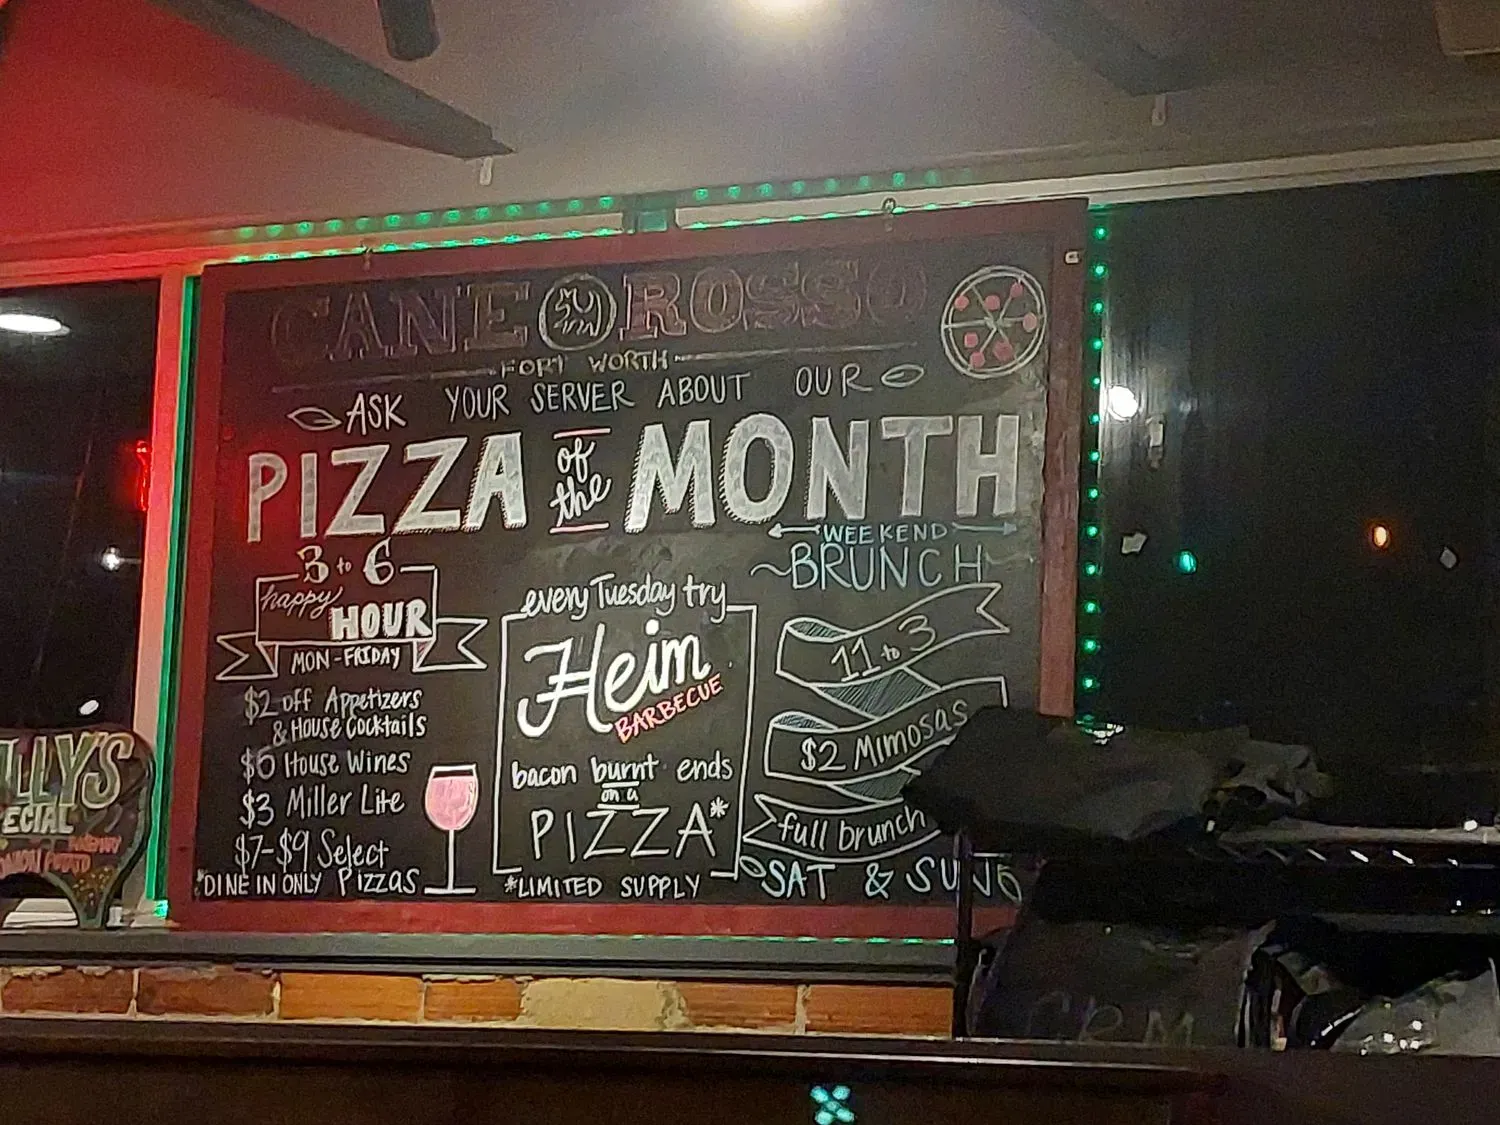 CANE ROSSO
FORT WORTH
ASK YOUR SERVER ABOUT OUR
PIZZA of the MONTH
3 to 6
happy
HOUR
MON-FRIDAY
$2 off Appetizers
& House Cocktails
$6 House Wines
$3 Miller Lite
$7-$9 Select
*DINE IN ONLY Pizzas
every Tuesday try
Heim
BARBECUE
bacon burnt ends
on a
PIZZA*
*LIMITED SUPPLY
WEEKEND
BRUNCH
11 to 3
$2 Mimosas
full brunch
SAT & SUN
LLY'S
ECIAL
POTATO